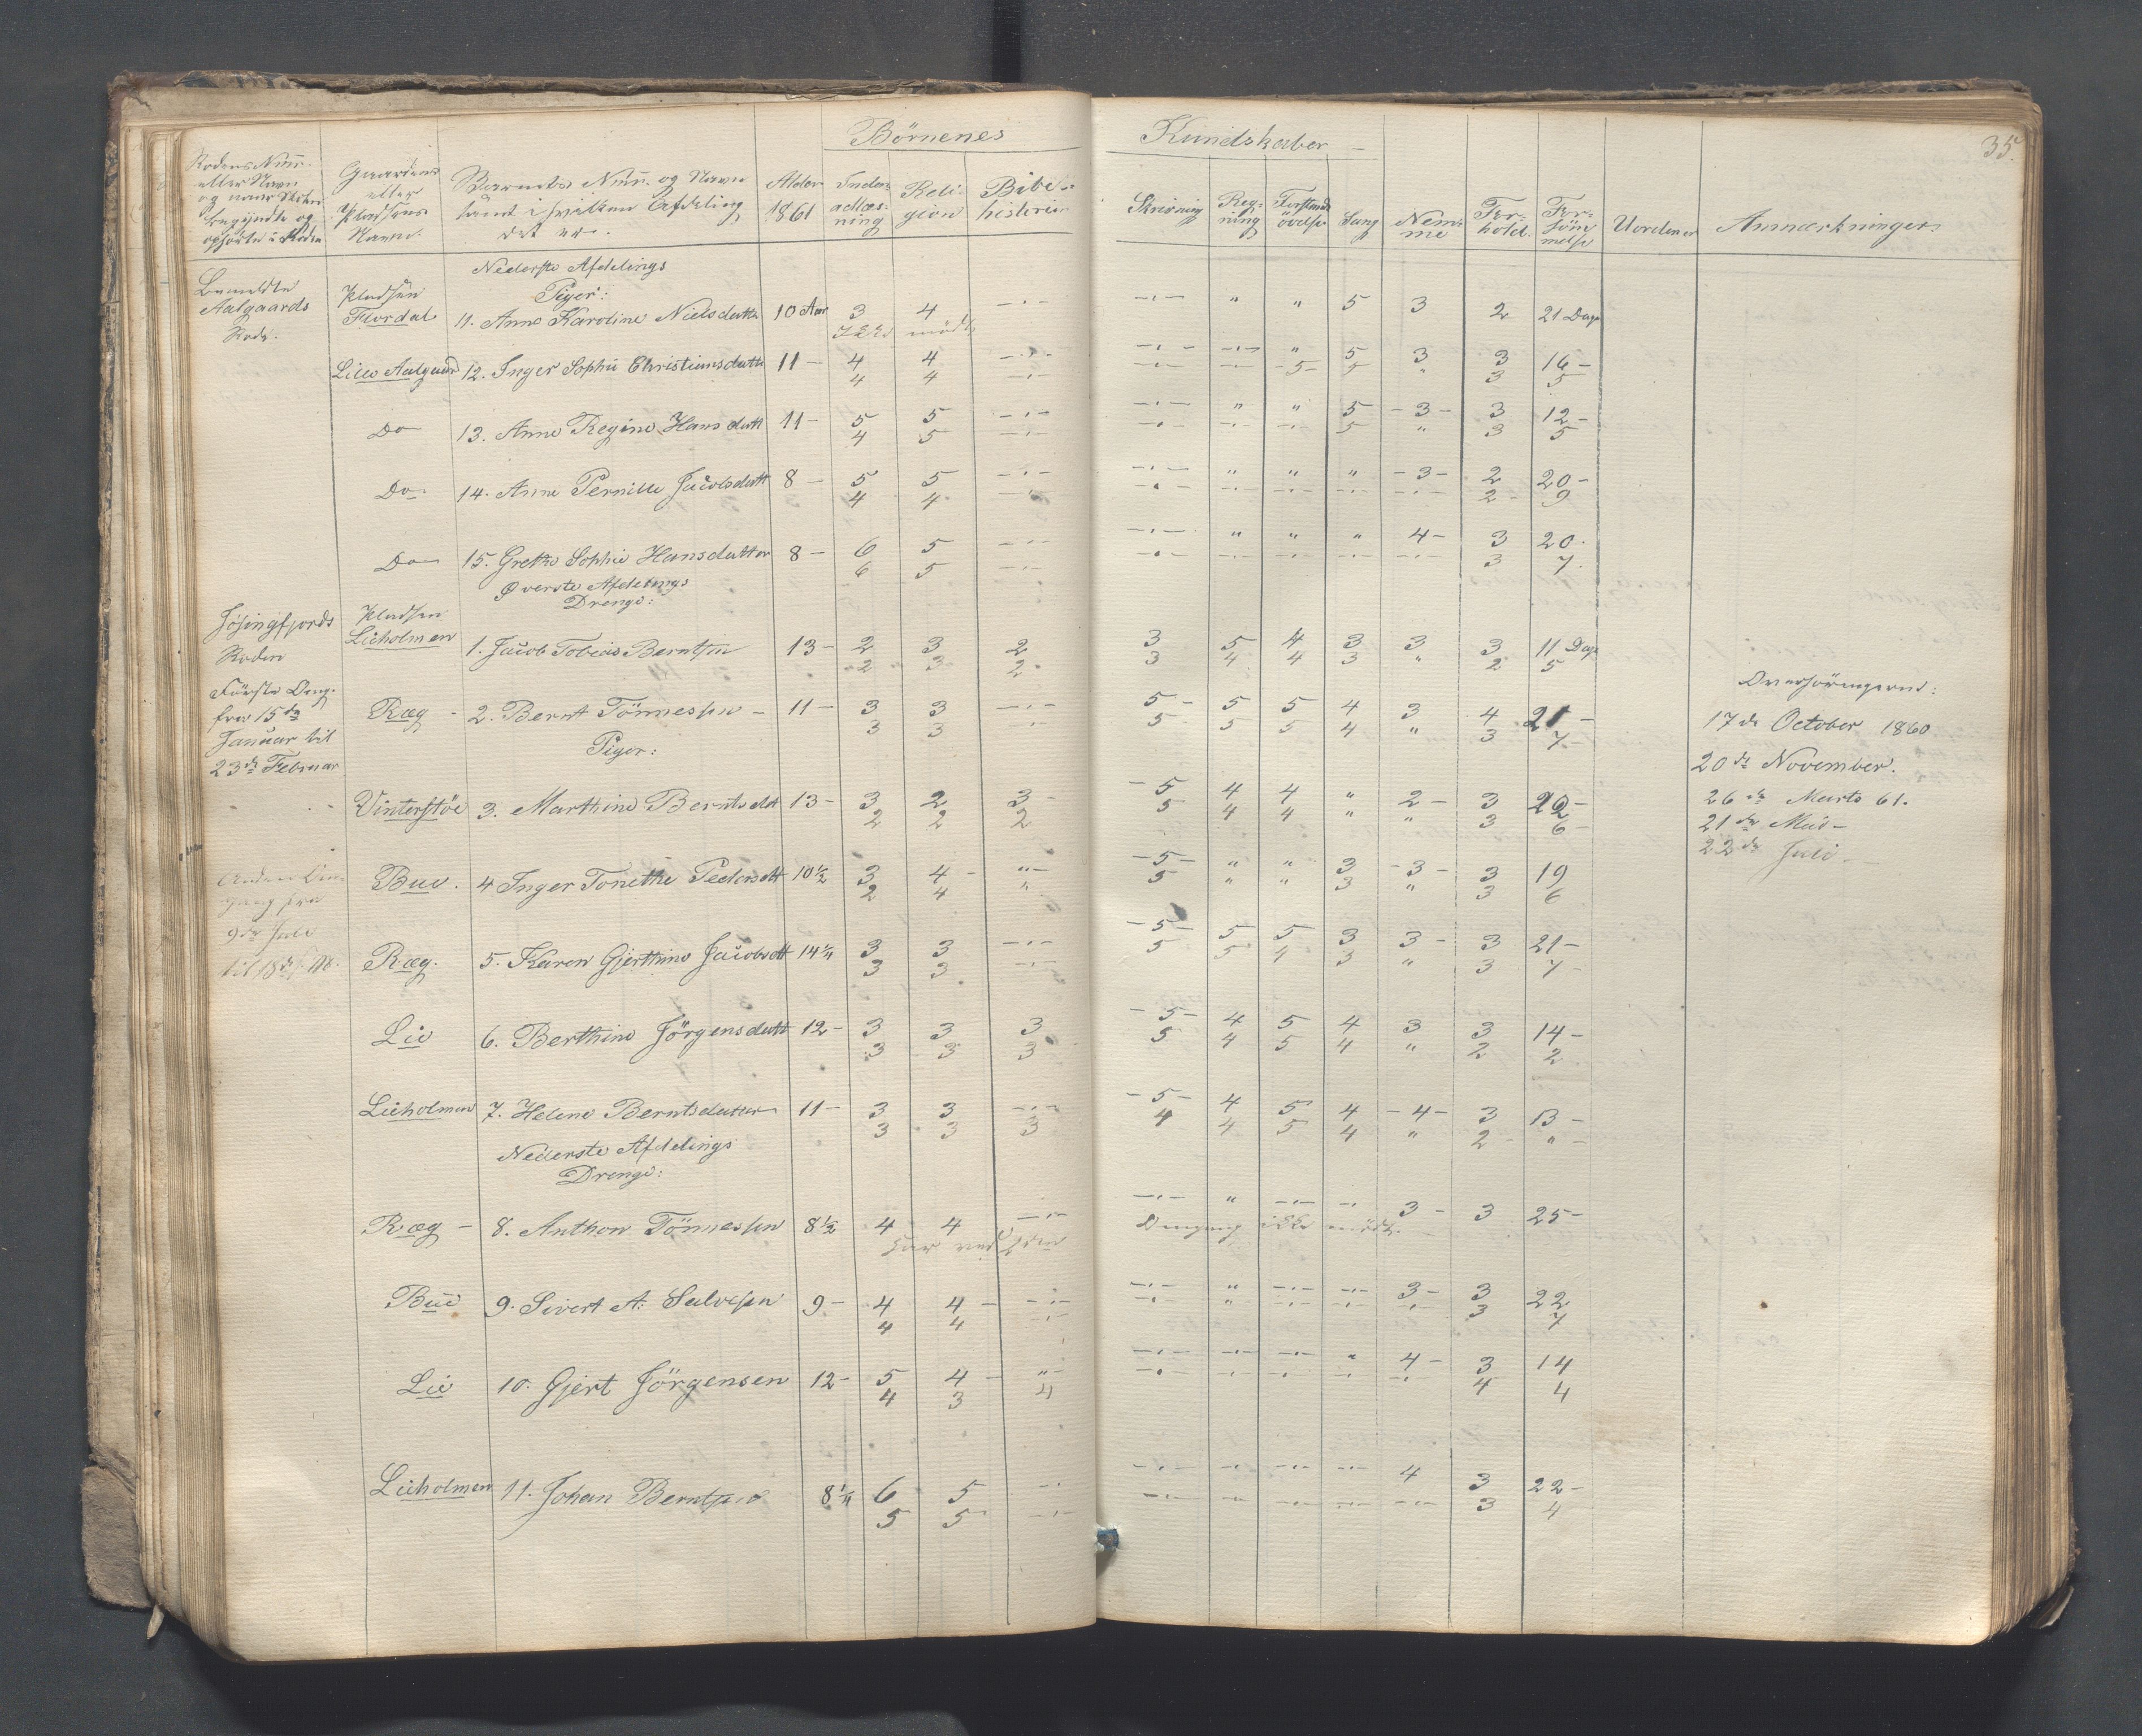 Börnenes Kundskaber
35.
Rodens Num̄.
eller Navn
og naar Skolen
begyndte og
ophörte i Roden
Gaardens
eller
Pladsens
Navn.
Barnets Num̄. og Navn
samt i hvilken Afdeling
det er.
Alder
1861
Inden-
adlæs-
ning
Reli-
gion
Bibel-
historie
Skrivning
Reg-
ning
Forstands
övelse
Sang
Nem-
me
For-
hold.
For-
söm-
melse
Uorden
Anmærkninger.
Nederste Afdelings
Piger:
Bemeldte
Aalgaards
Rode.
Pladsen
Flordal 11. Anne Karoline Nielsdatter 10 Aar 3 4 -"- -"- " " 5 3 2 21 Dage
Ikke mödt
Lille Aalgaard 12. Inger Sophie Christiansdatter 11 - 4 4 -"- -"- -"- " 5 3 3 16 -
4 4 -"- -"- -"- -5- 5 " 3 5
Do 13. Anne Regine Hansdatt 11 - 5 5 -"- -"- " " 5 -3- 3 12 -
4 5 -"- -"- -"- -"- 5 " 3 5
Do 14. Anne Pernille Jacobsdatt 8 - 5 5 -"- -"- " " " -3- 2 20 -
4 4 -"- -"- -"- -"- -"- -"- 2 - 9
Do 15. Grethe Sophie Hansdatter 8 - 6 5 -"- -"- " " " 4 - 3 20.
6 5 -"- -"- -"- -"- -"- -"- 3 7.
Øverste Afdelings
Drenge:
Jösingfjords
Roden
Pladsen
Lieholmen 1. Jacob Tobias Berntsen 13 - 2 3 2 3 5 4 3 3 3 11 Dage
2 3 2 3 4 4 3 " 2 5
Förste Omg.
fra 15de
Januar til
23de Februar
Ræg - 2. Bernt Tönnessen - 11 - 3 3 -"- 5 - 5 5 4 3 4 21 -
3 3 -"- 5 5 5 4 " 3 7 -
Overhöringerne:
17de October 1860
20de November.
26de Marts 61.
21de Mai -
22de Juli -
Piger:
Vinterstöe 3. Marthine Berntsdtt 13 - 3 2 3 - - 5 4 4 " 2 - 3 22 -
2 2 2 5 4 4 " " 3 6 -
Anden Om-
gang fra
9de Juli
Bue. 4 Inger Tonethe Pedersdtt 10½ 3 4 - "- - 5 - " " 3 -3- 3 19
2 4 " 5 " " 3 " 3 6
Ræg. 5. Karen Gjerthine Jacobsdtt 14¼ 3 3 -"- - 5 - 5 5 3 3 - 3 21 -
3 3 -"- 5 5 4 3 " 3 7 -
Lie 6. Berthine Jörgensdatt 12 - 3 3 3 - 5 - 4 5 4 3 3 14 -
3 3 3 5 4 5 4 " 2 2
Lieholmen 7. Helene Berntsdatter 11 - 3 3 -"- - 5 - 4 5 4 -4- 3 13 -
3 3 3 4 4 5 4 " 2 " -
Nederste Afdelings
Drenge:
Ræg - 8. Anthon Tönnessen 8½ 4 4 -"- -"- " -"- -"- 3 - 3 25 -
har ved den Omgang ikke mödt.
Bue 9. Sivert A. Salvesen 9 - 4 4 - -"- -"- " -"- -"- 3 - 3 22
4 4 -"- -"- " -"- -"- -"- 3 7
Lie 10. Gjert Jörgensen 12 - 5 4 - "- -"- -"- -"- " 4 - 3 14
4 3 4 -"- -"- -"- -"- -"- 4 4
Lieholmen 11. Johan Berntsen 8¼ 6 5 -"- -"- -"- -"- -"- 4 3 22 -
5 5 -"- -"- -"- -"- -"- -"- 3 4